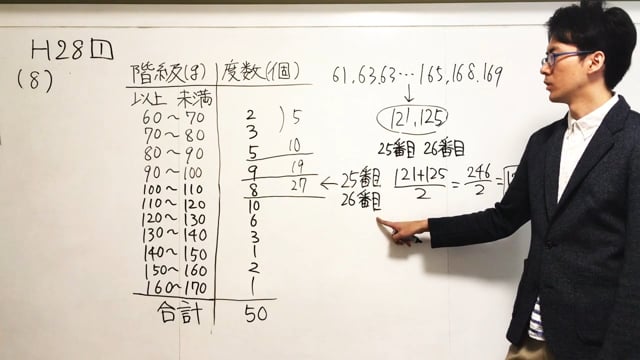 H28 1
(8)
階級(g) 度数(個)
以上 未満
60～70 2 ) 5
70～80 3
80～90 5 10
90～100 9 19
100～110 8 27
110～120 10
120～130 6
130～140 3
140～150 1
150～160 2
160～170 1
合計 50
61,63,63…165,168,169
↓
121,125
25番目 26番目
←25番目
26番目
121+125/2 = 246/2 = 1